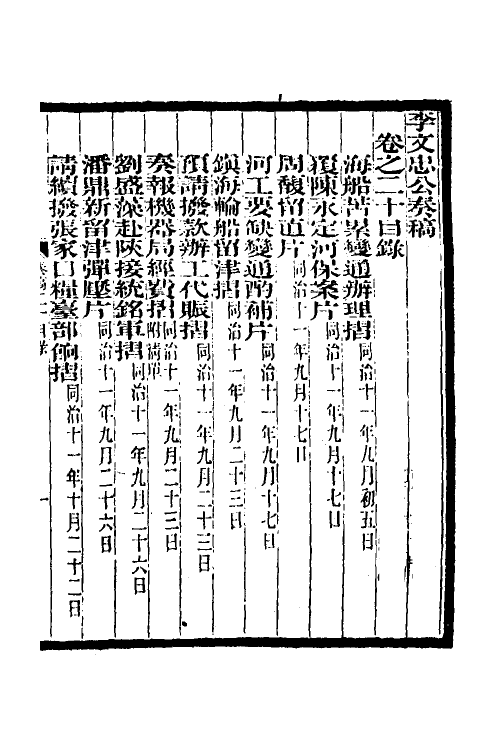 李文忠公奏稿
卷之二十目錄
海船苦累變通辦理摺同治十一年九月初五日
覆陳永定河保案片同治十一年九月十七日
周馥留直片同治十一年九月十七日
河工要缺變通酌補片同治十一年九月十七日
鎮海輪船留津摺同治十一年九月二十三日
預請撥款辦工代賑摺同治十一年九月二十三日
奏報機器局經費摺附清單同治十一年九月二十三日
劉盛藻赴陝接統銘軍摺同治十一年九月二十六日
潘鼎新留津彈壓片同治十一年九月二十六日
請續撥張家口糧臺部餉摺同治十一年十月二十二日
目錄
一